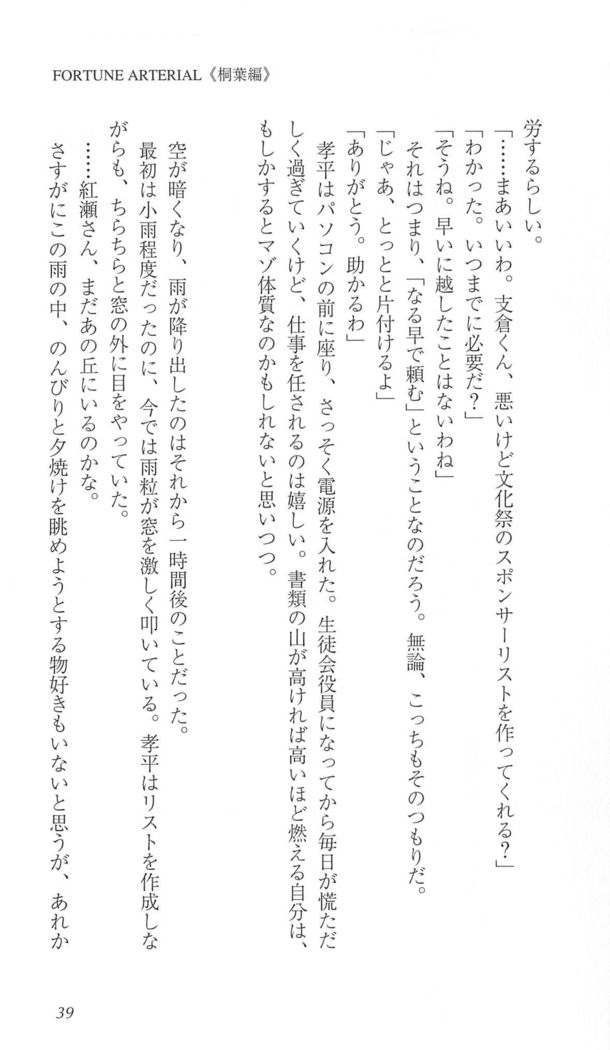 FORTUNE ARTERIAL《桐葉編》
労するらしい。
「……まあいいわ。支倉くん、悪いけど文化祭のスポンサーリストを作ってくれる？」
「わかった。いつまでに必要だ？」
「そうね。早いに越したことはないわね」
それはつまり、「なる早で頼む」ということなのだろう。無論、こっちもそのつもりだ。
「じゃあ、とっとと片付けるよ」
「ありがとう。助かるわ」
孝平はパソコンの前に座り、さっそく電源を入れた。生徒会役員になってから毎日が慌ただ
しく過ぎていくけど、仕事を任されるのは嬉しい。書類の山が高ければ高いほど燃える自分は、
もしかするとマゾ体質なのかもしれないと思いつつ。
空が暗くなり、雨が降り出したのはそれから一時間後のことだった。
最初は小雨程度だったのに、今では雨粒が窓を激しく叩いている。孝平はリストを作成しな
がらも、ちらちらと窓の外に目をやっていた。
……紅瀬さん、まだあの丘にいるのかな。
さすがにこの雨の中、のんびりと夕焼けを眺めようとする物好きもいないと思うが、あれか
39